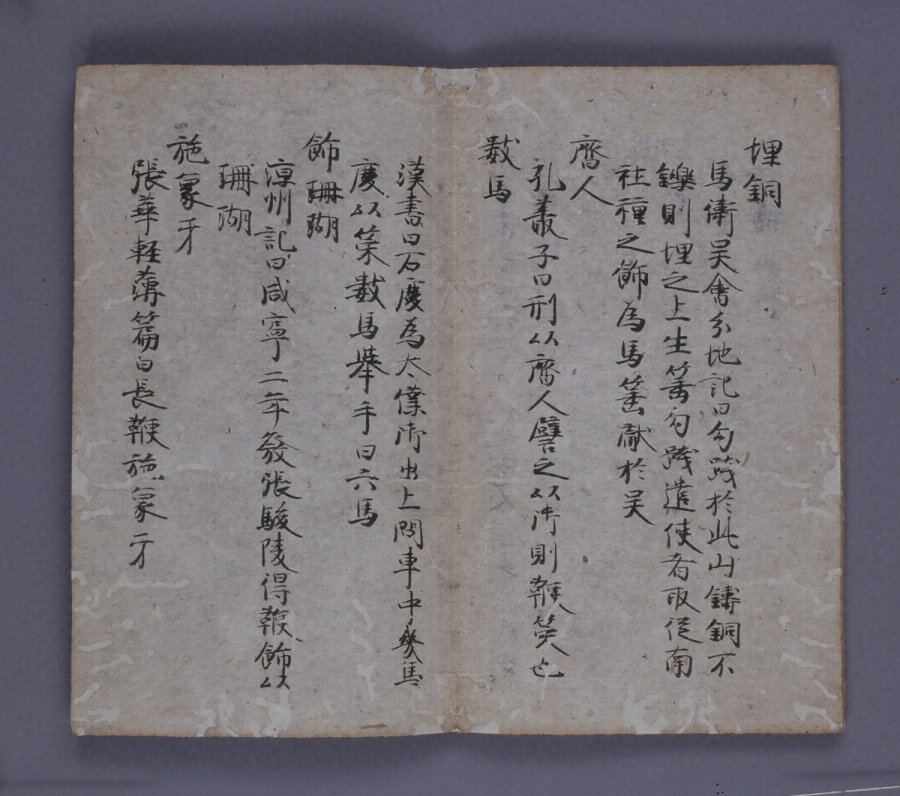 埋銅
馬衛呉會分地記曰勾践於此山鋳銅不
鑠則埋之上生箠勾践遣使者取従南
社種之飾為馬箠献於呉
齊人
孔叢子曰刑以齊人譬之以御則鞭筴也
數馬
漢書曰石慶為太僕御出上問車中幾馬
慶以策數馬舉手曰六馬
飾珊瑚
涼州記曰咸寧二年發張駿陵得鞭飾以
珊瑚
施象牙
張華軽薄篇曰長鞭施象牙